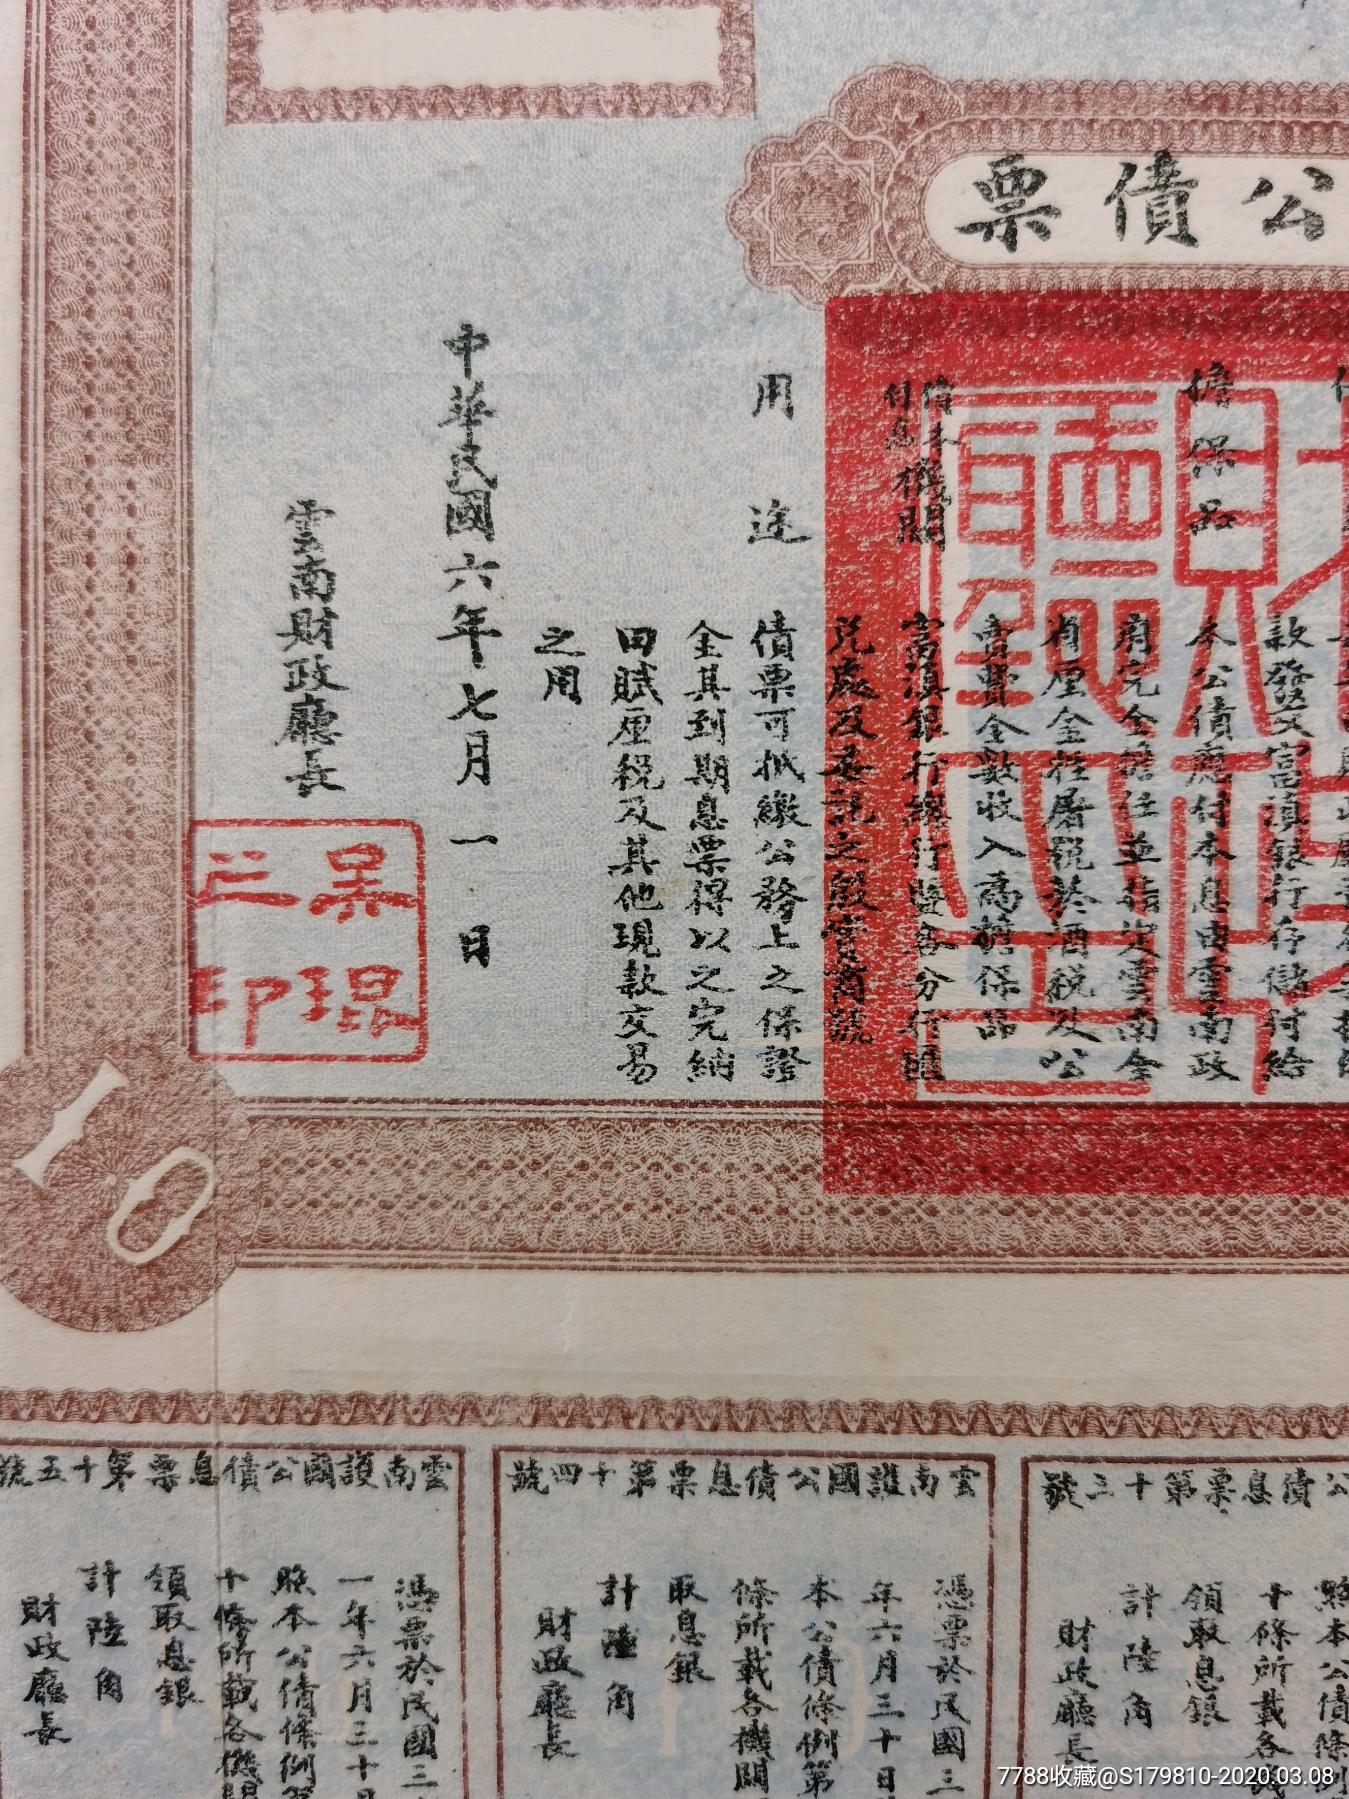 公債票
擔保品
本公債應付本息由雲南政
府完全擔任並指定雲南全
省厘金牲屠税於酒税及公
賣費全數收入爲擔保品
償本付息機關
富滇銀行總行暨各分行匯
兌處及委託之殷實商號
用途
債票可抵繳公務上之保證
金其到期息票得以之完納
田賦厘税及其他現款交易
之用
中華民國六年七月一日
雲南財政廳長
吴琨
之印
10
公債息票第十三號
照本公債條例
十條所載各機
領取息銀
計陸角
財政廳長
雲南護國公債息票第十四號
憑票於民國三
年六月三十日
本公債條例第
條所載各機關
取息銀
計陸角
財政廳長
雲南護國公債息票第十五號
憑票於民國三
一年六月三十日
照本公債條例第
十條所載各機關
領取息銀
計陸角
財政廳長
7788收藏@S179810-2020.03.08